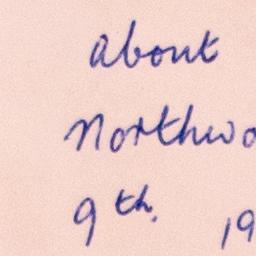 about
Northwo
9th. 19